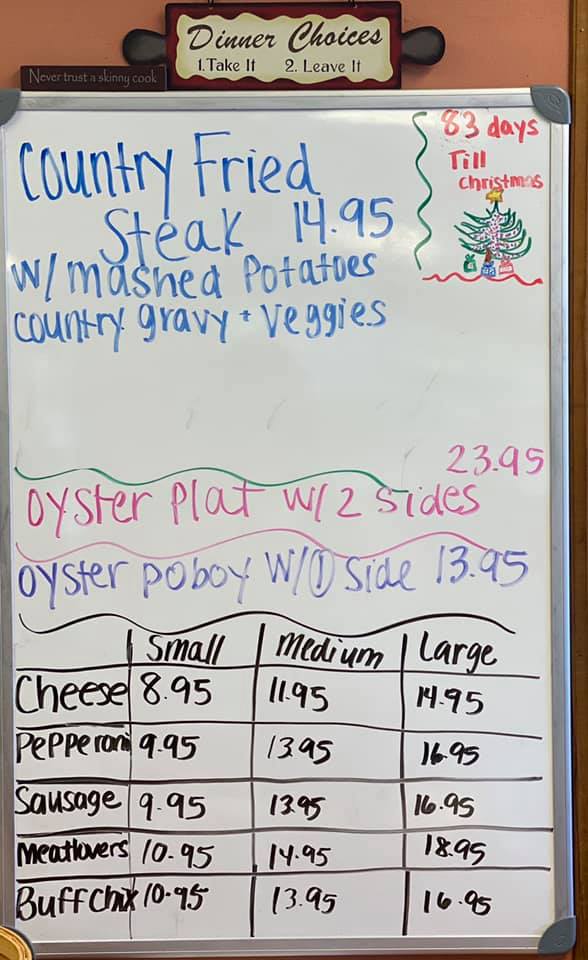 Dinner Choices
1. Take It 2. Leave It
Never trust a skinny cook
83 days
Till
christmas
Country Fried
Steak 14.95
w/ mashed Potatoes
country gravy + veggies
23.95
oyster plat w/2 sides
oyster poboy w/1 side 13.95
Small Medium Large
Cheese 8.95 11.95 14.95
Pepperoni 9.95 13.95 16.95
Sausage 9.95 13.95 16.95
Meatlovers 10.95 14.95 18.95
Buff chix 10.95 13.95 16.95